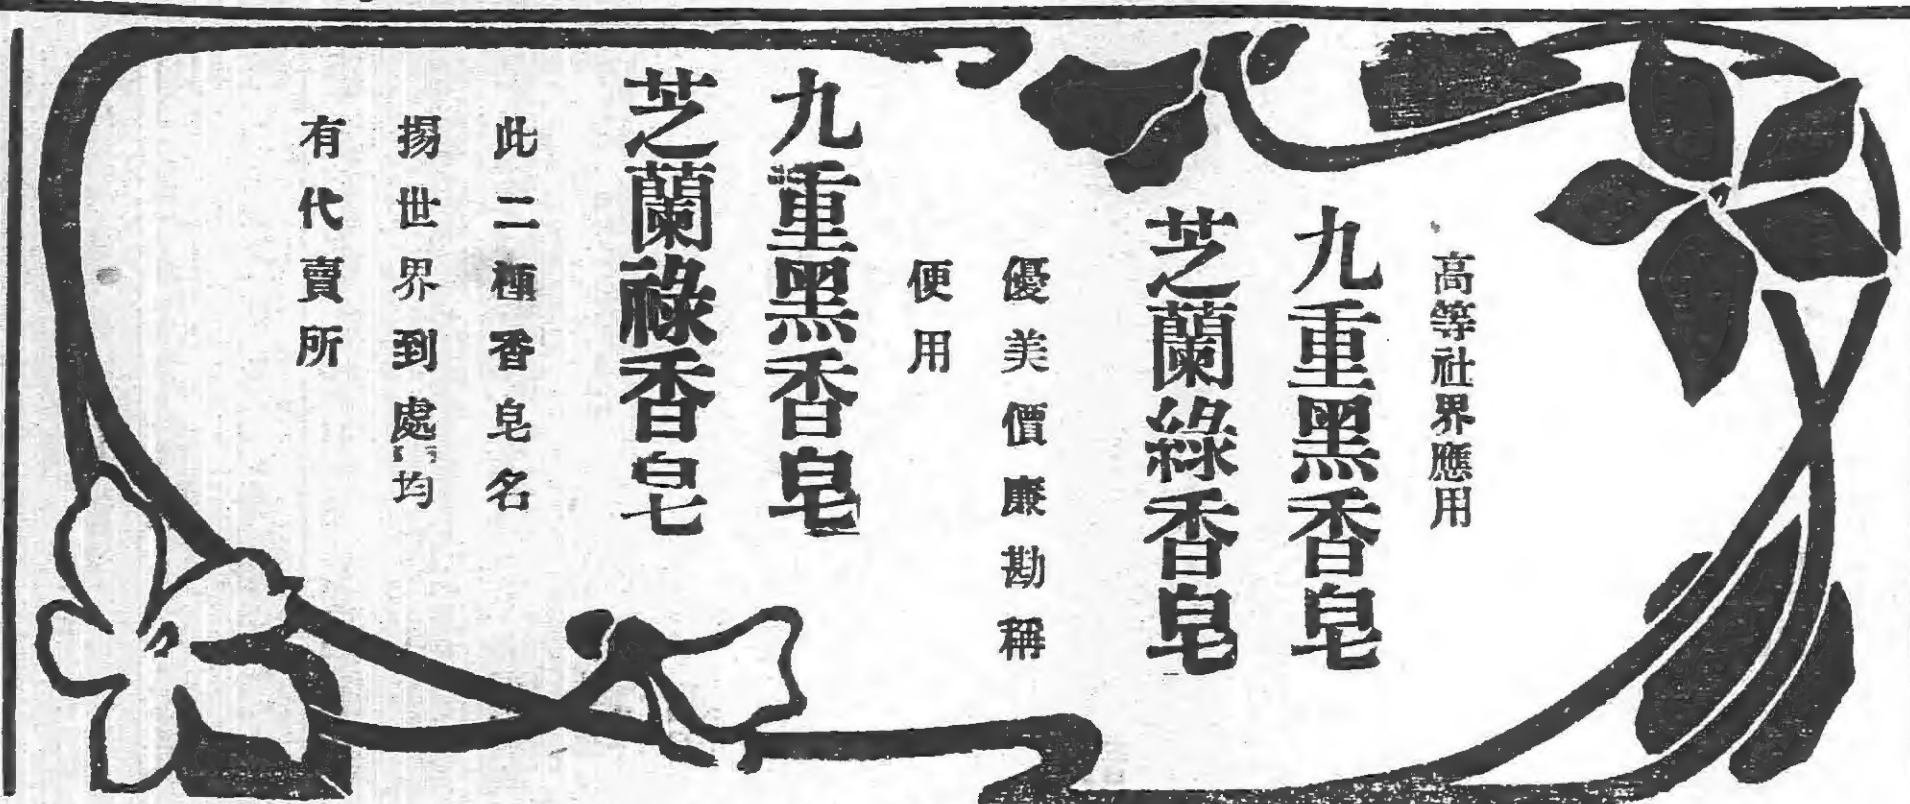 高等社界應用
九重黑香皂
芝蘭綠香皂
優美價廉勘稱
便用
九重黑香皂
芝蘭祿香皂
此二種香皂名
揚世界到處均
有代賣所